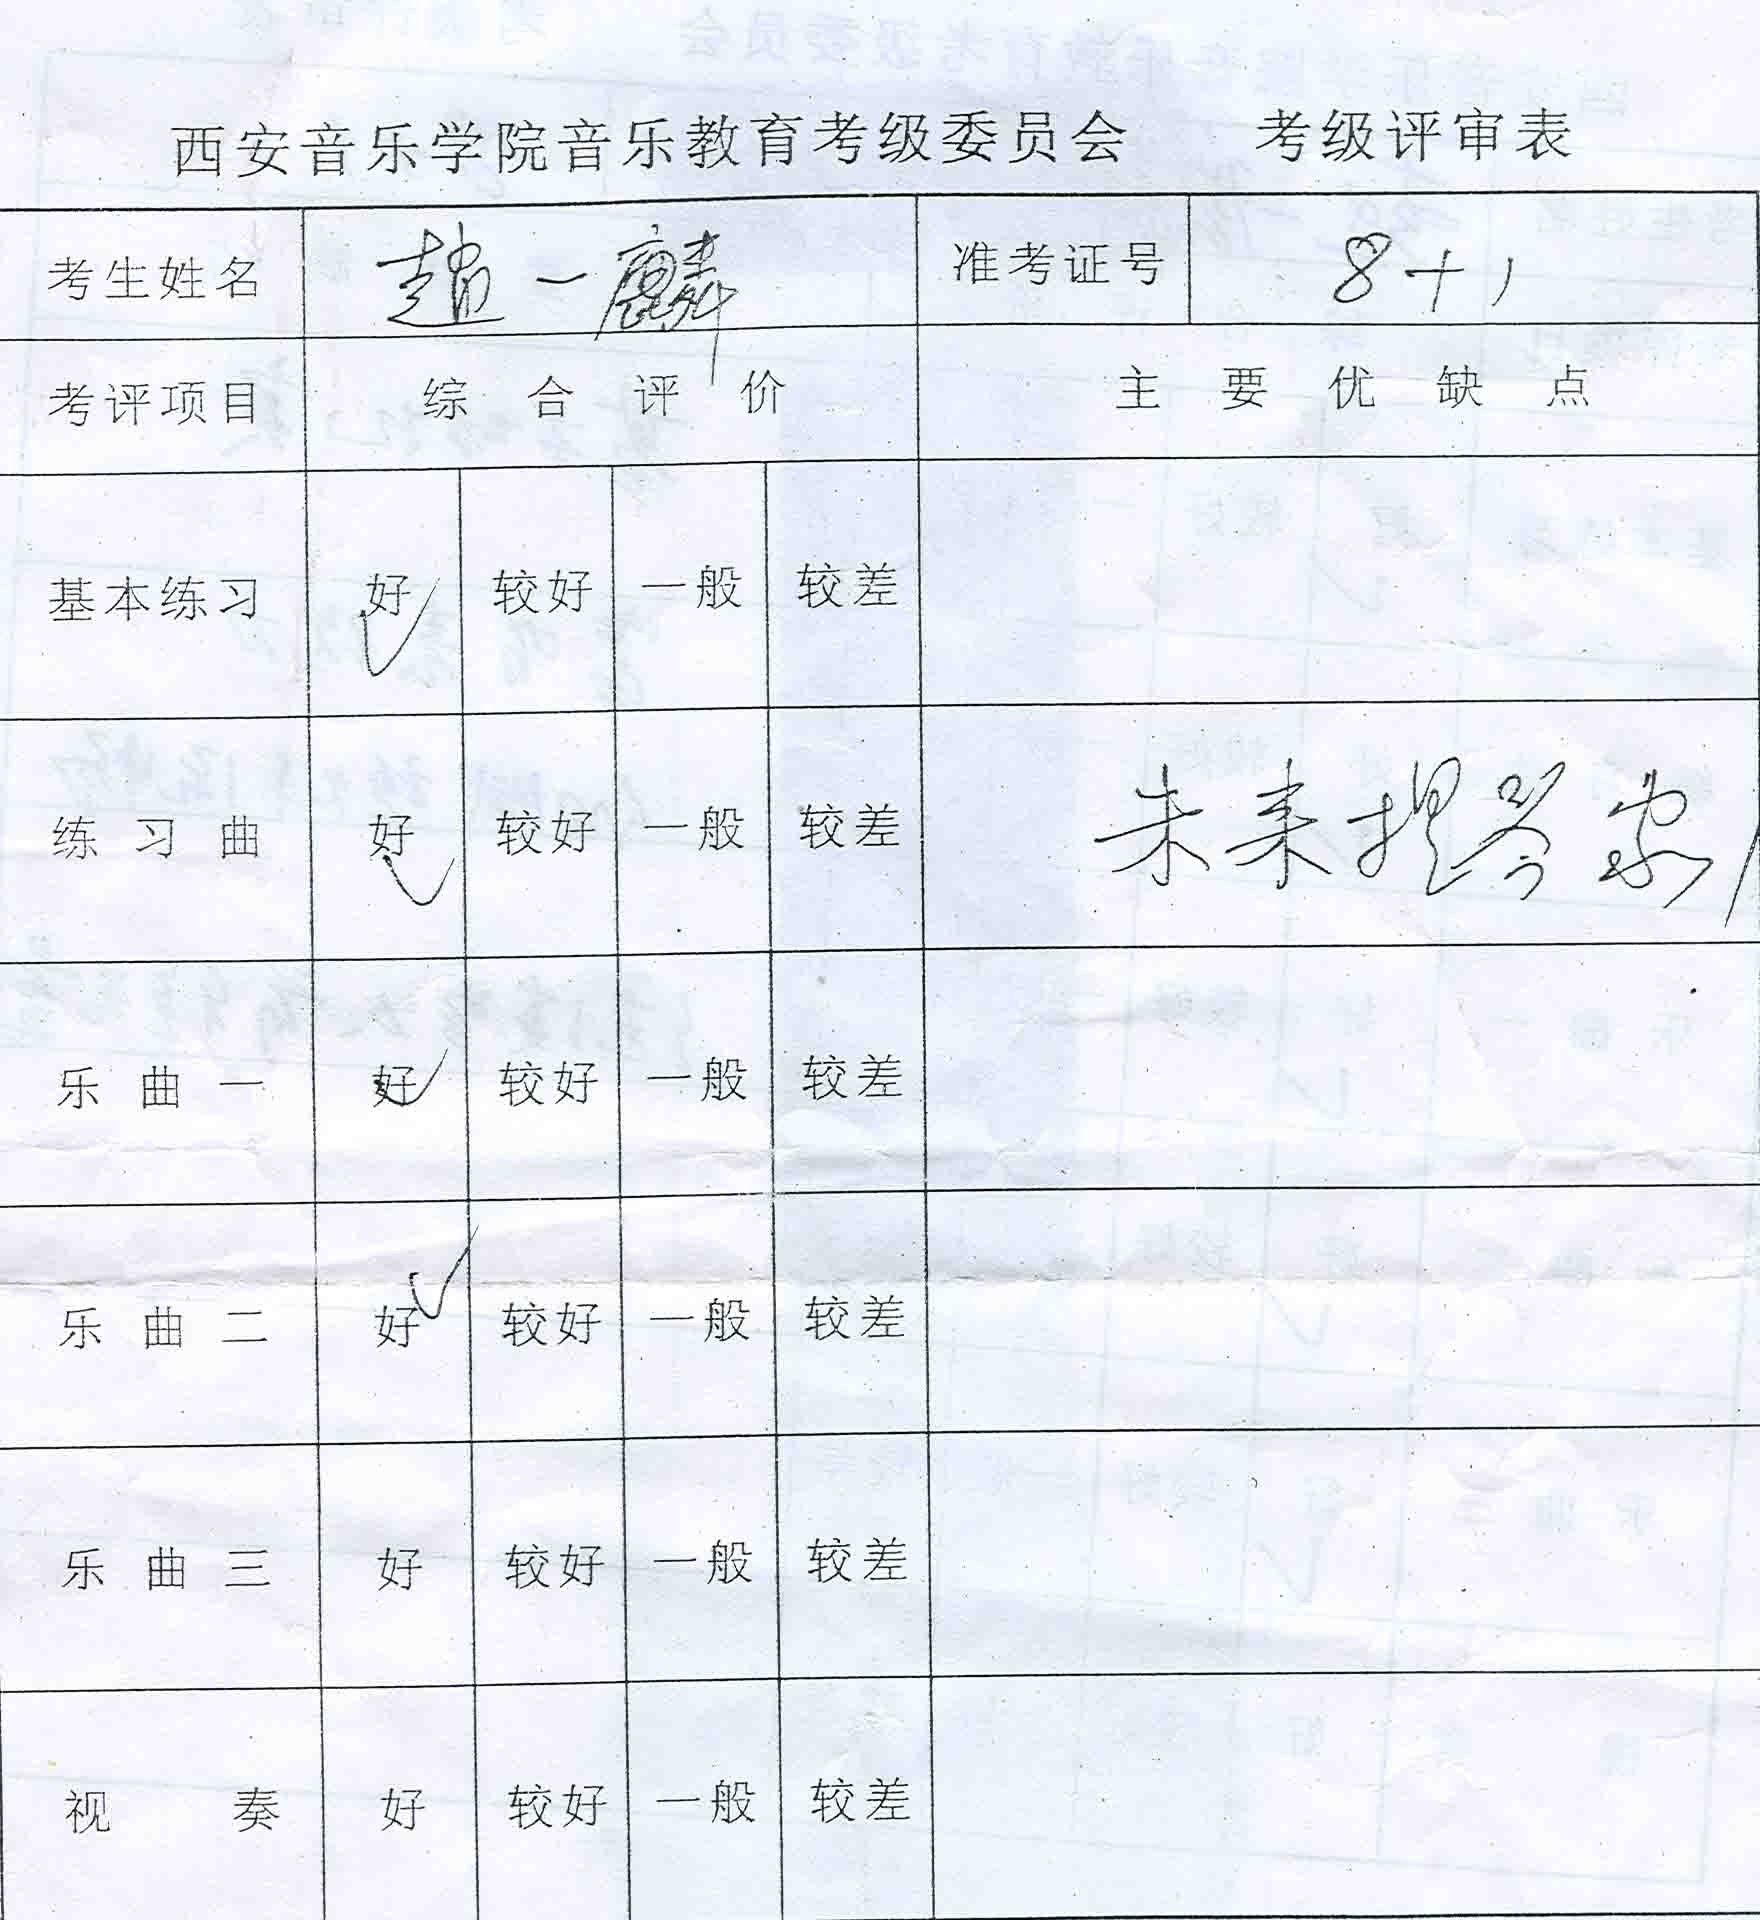 西安音乐学院音乐教育考级委员会 考级评审表
考生姓名 趙一麟 准考证号 8+1
考评项目 综合评价 主要优缺点
基本练习 好 较好 一般 较差
练习曲 好 较好 一般 较差 未来提琴家
乐曲一 好 较好 一般 较差
乐曲二 好 较好 一般 较差
乐曲三 好 较好 一般 较差
视奏 好 较好 一般 较差